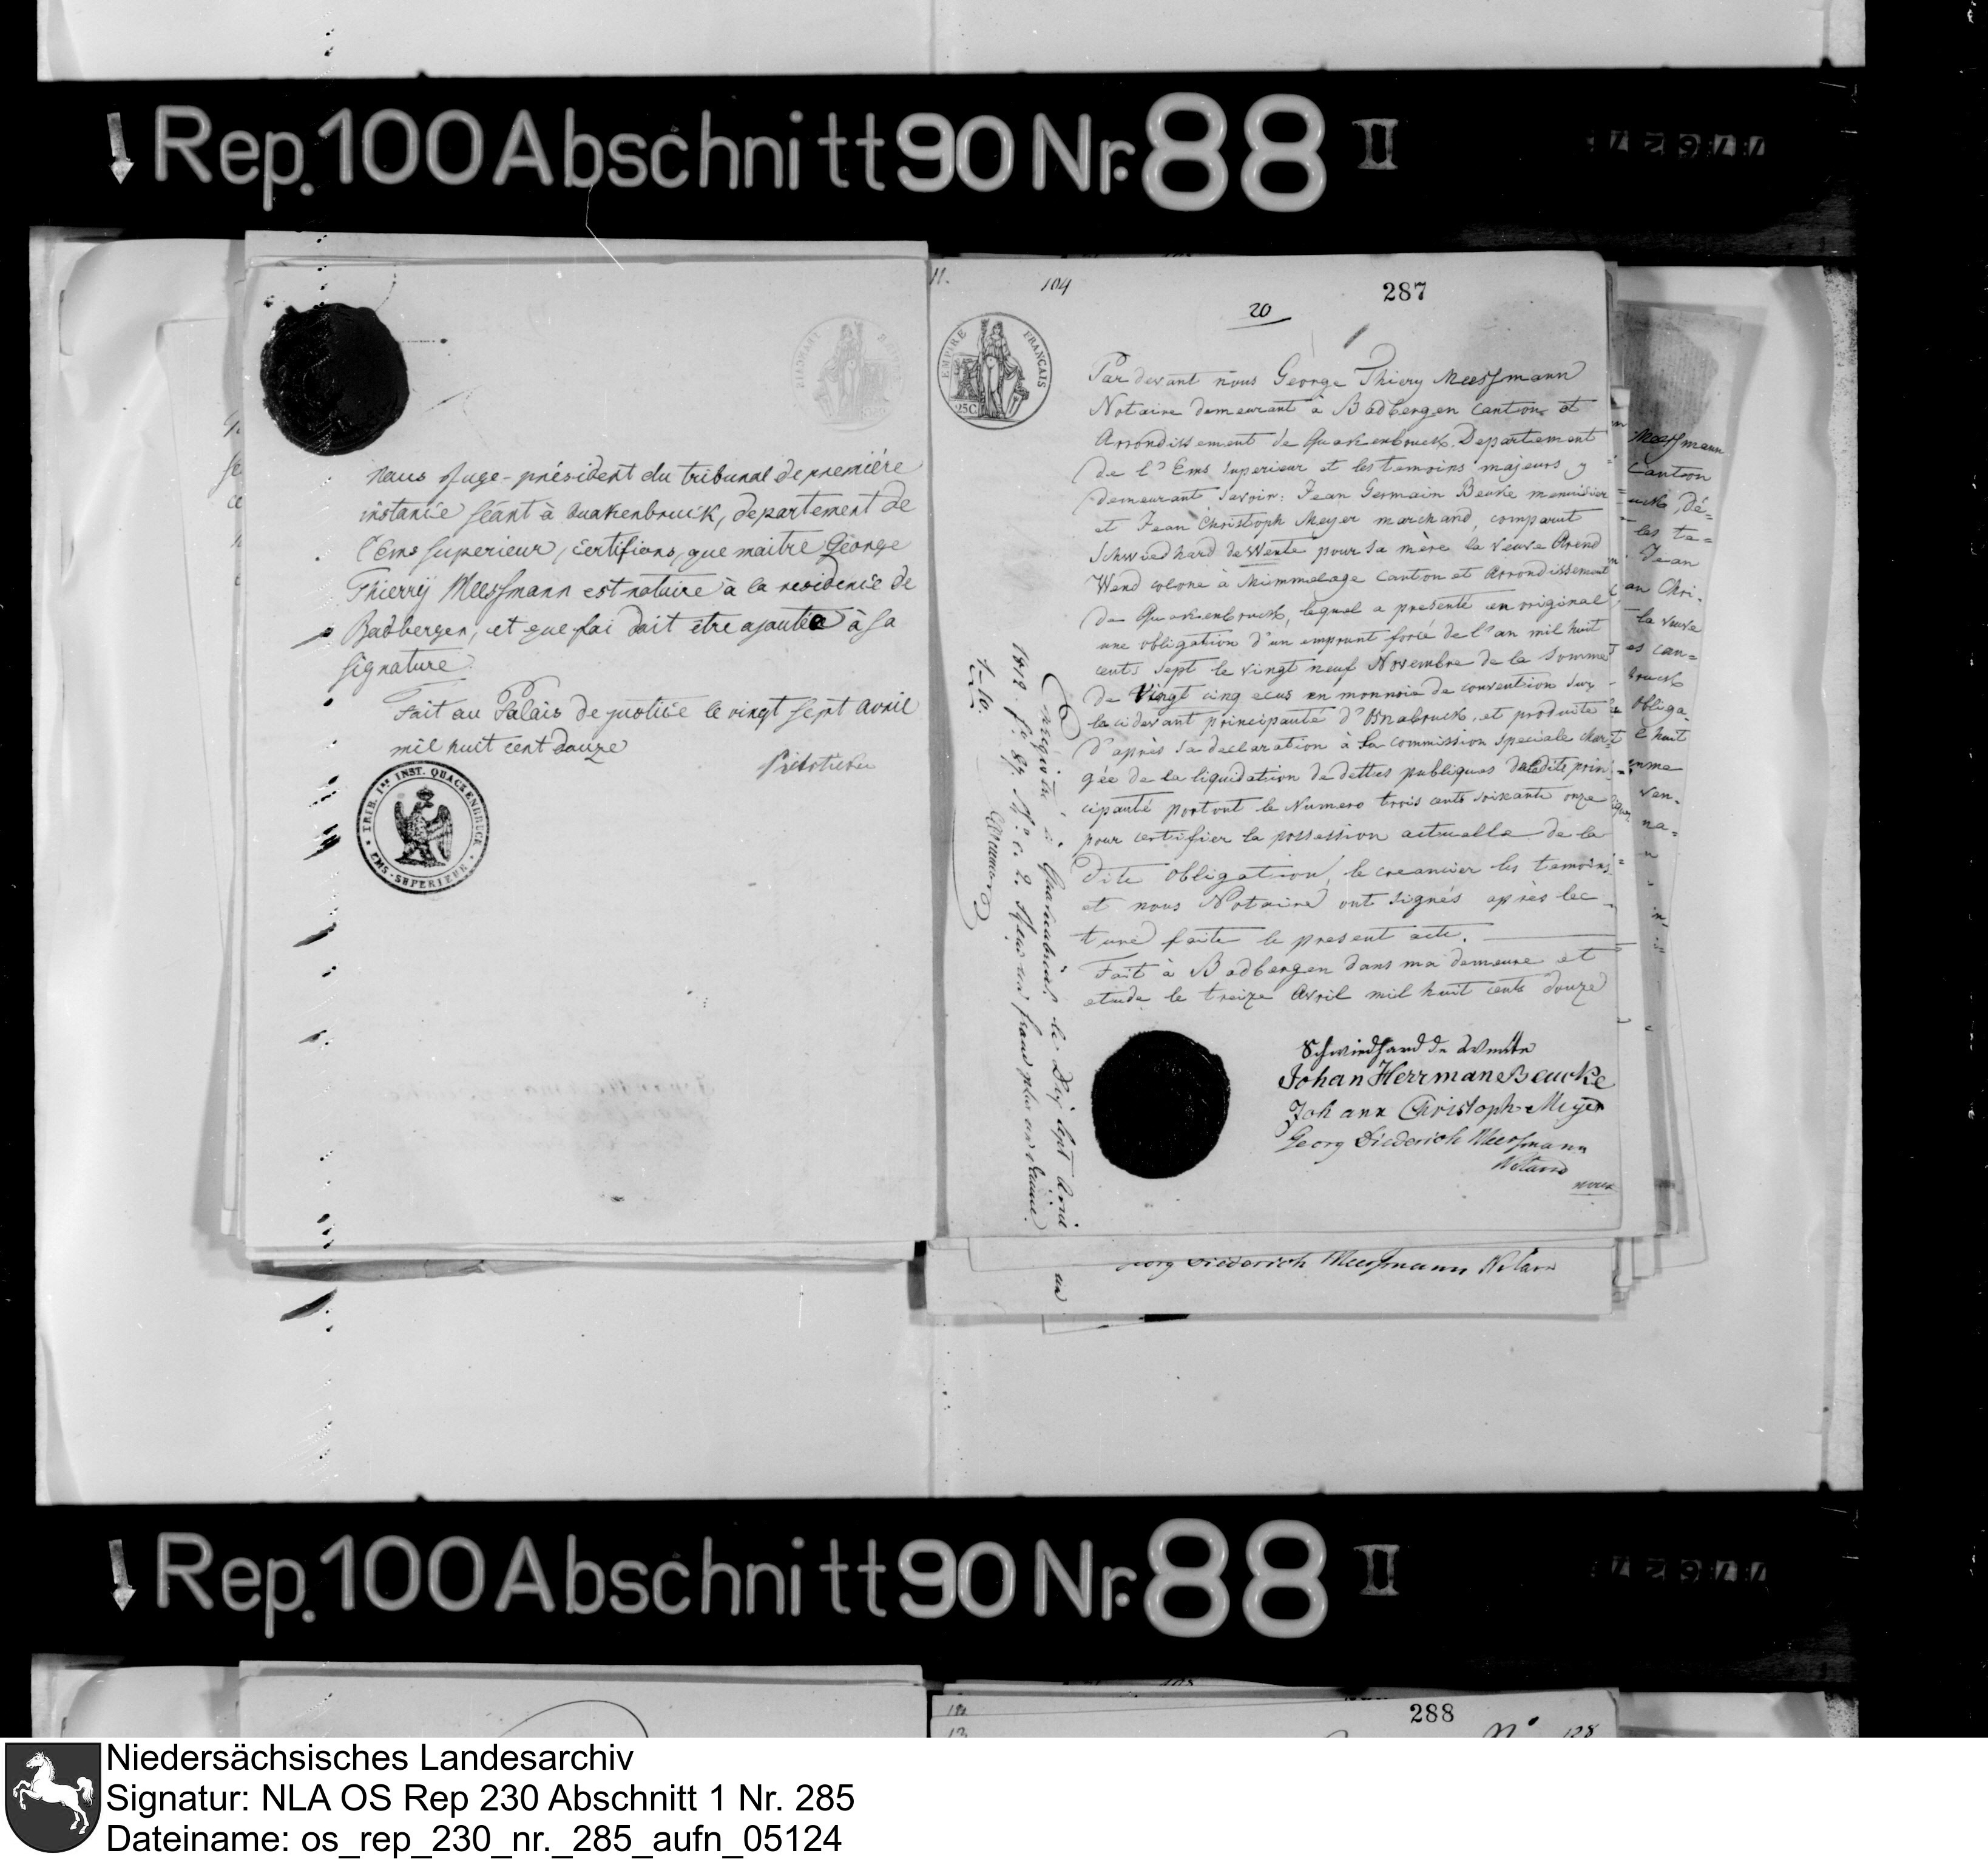 Rep. 100 Abschnitt 90 Nr. 88 II
Nous Juge-président du tribunal de premiére
instance séant à Quakenbruck, departement de
l'Ems superieur, certifions, que maitre George
Thierrÿ Meessmann est notaire à la residence de
Badbergen, et que foi doit être ajoutée à sa
signature
Fait au Palais de justice le vingt sept avril
mil huit cent douze
TRIB. Ire INST. QUACKENBRUCK
EMS-SUPERIEUR
11.
104
287
20
EMPIRE FRANÇAIS
25C
Par devant nous George Thiery Meessmann
Notaire demeurant à Badbergen Canton et
Arrondissement de Quakenbruck Departement
de l'Ems superieur et les temoins majeurs y
demeurant savoir: Jean Germain Beuke menuisier
et Jean Christoph Meyer marchand, comparut
Schwiedhard de Wente pour sa mère la veuve Arend
Wend colone à Mimmelage Canton et Arrondissement
de Quakenbruck, lequel a presenté en original
une obligation d'un emprunt forcé de l'an mil huit
cents sept le vingt neuf Novembre de la somme
de Vingt cinq ecus en monnoie de convention sur
la cidevant principauté d'Osnabruck, et produite
d'après sa declaration à la commission speciale char=
gée de la liquidation de dettes publiques deladite prin
cipauté portant le Numero trois cents soixante onze
pour certifier la possession actuelle de la
dite obligation, le creancier les temoins
et nous Notaire ont signés après lec
ture faite le present acte.
Fait à Badbergen dans ma demeure et
etude le treize Avril mil huit cents douze
Schwiedhard de Wente
Johan Herrman Beucke
Johann Christoph Meyer
Georg Diederich Meessmann
Notaire
Enregistré à Quakenbruck le Dix sept Avril
1812. fo. 87. Ro. c. 2. Reçu un franc plus un dixième.
1-10.
Meessmann
Canton
Jean
la veuve
obliga-
Georg Diederich Meessmann Notar
Rep. 100 Abschnitt 90 Nr. 88 II
288
No 128
Niedersächsisches Landesarchiv
Signatur: NLA OS Rep 230 Abschnitt 1 Nr. 285
Dateiname: os_rep_230_nr._285_aufn_05124